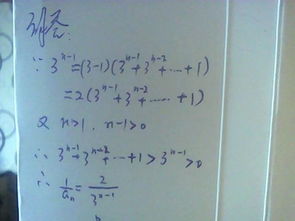 ∵ 3^n-1=(3-1)(3^{n-1}+3^{n-2}+…+1)
=2(3^{n-1}+3^{n-2}+…+1)
又 n>1, n-1>0
∴ 3^{n-1}+3^{n-2}+…+1>3^{n-1}>0
∴ 1/a_n = 2/(3^n-1)